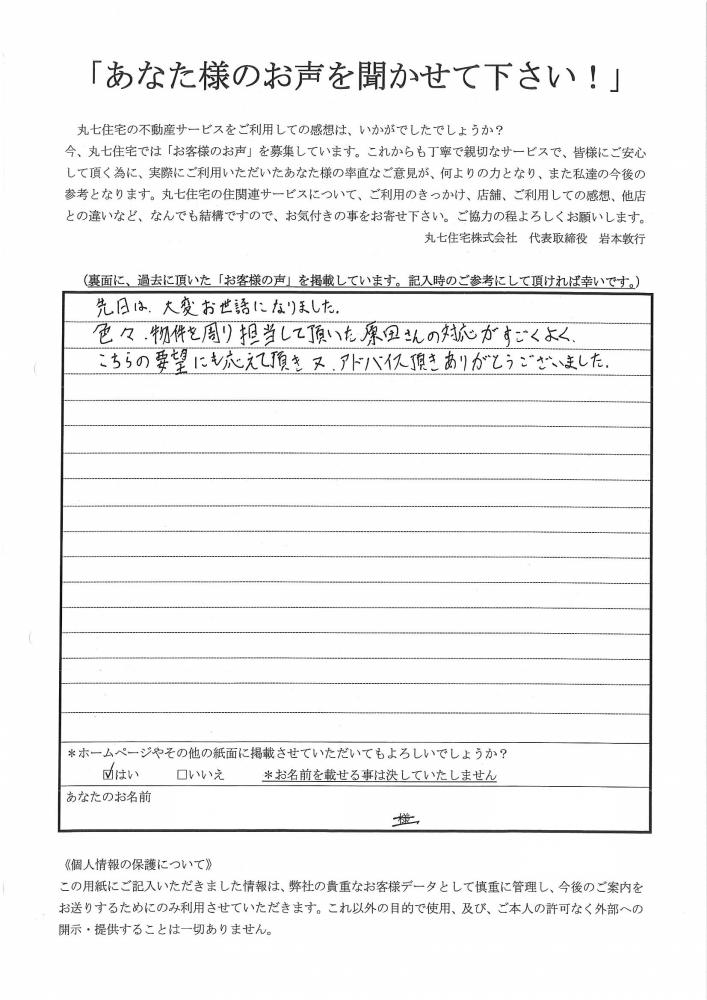 「あなた様のお声を聞かせて下さい！」
丸七住宅の不動産サービスをご利用しての感想は、いかがでしたでしょうか？
今、丸七住宅では「お客様のお声」を募集しています。これからも丁寧で親切なサービスで、皆様にご安心
して頂く為に、実際にご利用いただいたあなた様の率直なご意見が、何よりの力となり、また私達の今後の
参考となります。丸七住宅の住関連サービスについて、ご利用のきっかけ、店舗、ご利用しての感想、他店
との違いなど、なんでも結構ですので、お気付きの事をお寄せ下さい。ご協力の程よろしくお願いします。
丸七住宅株式会社　代表取締役　岩本敦行
（裏面に、過去に頂いた「お客様の声」を掲載しています。記入時のご参考にして頂ければ幸いです。）
先日は、大変お世話になりました。
色々、物件を周り担当して頂いた原田さんの対応がすごくよく、
こちらの要望にも応えて頂き又、アドバイス頂きありがとうございました。
＊ホームページやその他の紙面に掲載させていただいてもよろしいでしょうか？
☑はい　□いいえ　＊お名前を載せる事は決していたしません
あなたのお名前
様
《個人情報の保護について》
この用紙にご記入いただきました情報は、弊社の貴重なお客様データとして慎重に管理し、今後のご案内を
お送りするためにのみ利用させていただきます。これ以外の目的で使用、及び、ご本人の許可なく外部への
開示・提供することは一切ありません。